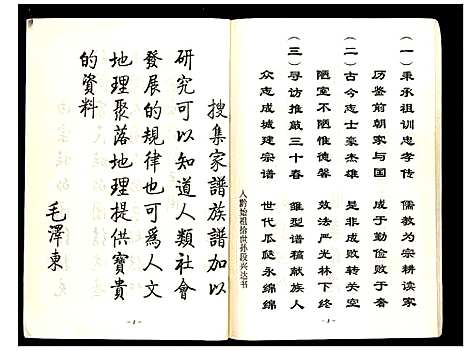 （一）秉承祖训忠孝传　儒教为宗耕读家
历鉴前朝家与国　成于勤俭败于奢
（二）古今志士豪杰雄　是非成败转关空
陋室不陋惟德馨　效法严光林下终
（三）寻访推敲三十春　雏型谱稿献族人
众志成城建宗谱　世代瓜瓞永绵绵
入黔始祖拾世孙段兴达书
- 3 -
搜集家譜族譜加以
研究可以知道人類社會
發展的規律也可為人文
地理聚落地理提供寶貴
的資料
毛澤東